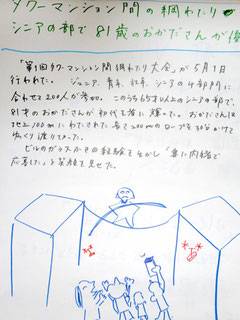 タワーマンション間の綱わたり
シニアの部で81歳のおかださんが優
「第1回タワーマンション間綱わたり大会」が5月1日
行われた。ジュニア、青年、壮年、シニアの4部門に
合わせて200人が参加。このうち65才以上のシニアの部で、
81才のおかださんが初代王者に輝いた。おかださんは
地上100mにわたされた長さ200mのロープを30分かけて
ゆっくり渡りきった。
ビルのガラスふきの経験を生かし「妻に内緒で
応募した」と笑顔を見せた。